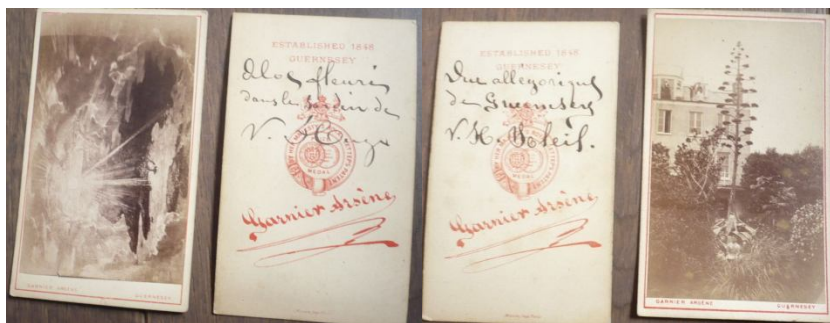 GARNIER ARSÈNE GUERNESEY
ESTABLISHED 1848
GUERNESEY
Aloes fleuri
dans le Jardin de
V. Hugo
MEDAL
Garnier Arsène
ESTABLISHED 1848
GUERNESEY
Vue allegorique
de Guernesey
V. H. Soleil.
MEDAL
Garnier Arsène
GARNIER ARSÈNE GUERNESEY